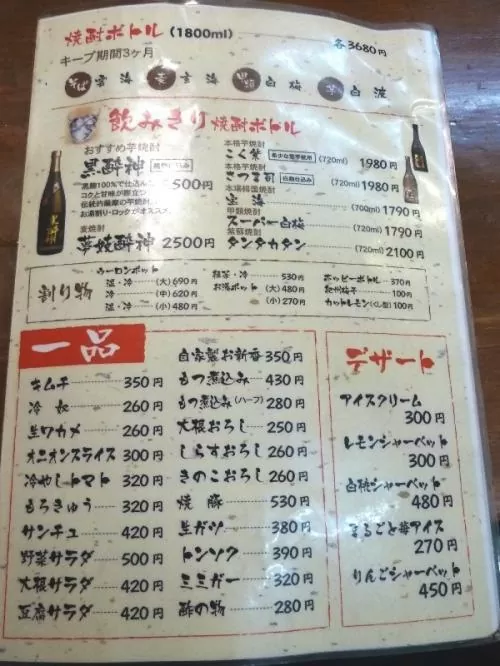 焼酎ボトル (1800ml) 各3680円
キープ期間3ヶ月
そば 雲海 麦 玄海 甲類 白梅 芋 白波
飲みきり焼酎ボトル
おすすめ芋焼酎
黒酔神
黒麹100%で仕込んだ
コクと甘味が際立つ
伝統的薩摩の芋焼酎
お湯割り・ロックがオススメ
500円
麦焼酎
華妓酔神 2500円
本格芋焼酎
こく紫 (720ml) 1980円
本格芋焼酎
さつま司 (720ml) 1980円
宝海 (700ml) 1790
甲類焼酎
スーパー白梅 (720ml) 1790
紫蘇焼酎
タンタカタン (720ml) 2100
割り物
ウーロンポット
温・冷 (大) 690円
冷 (中) 620円
温・冷 (小) 480円
緑茶・冷 530円
お湯ポット (大) 480円
(小) 270円
ホッピーボトル 370円
紀州梅干 100円
カットレモン 100円
一品
キムチ 350円
冷奴 260円
生ワカメ 260円
オニオンスライス 300円
冷やしトマト 320円
もろきゅう 320円
サンチュ 420円
野菜サラダ 500円
大根サラダ 420円
豆腐サラダ 420円
自家製お新香 350円
もつ煮込み 430円
もつ煮込み(ハーフ) 280円
大根おろし 250円
しらすおろし 260円
きのこおろし 260円
焼豚 530円
生ガツ 380円
トンソク 390円
ミミガー 320円
酢の物 280円
デザート
アイスクリーム
300円
レモンシャーベット
300円
白桃シャーベット
480円
まるごと苺アイス
270円
りんごシャーベット
450円